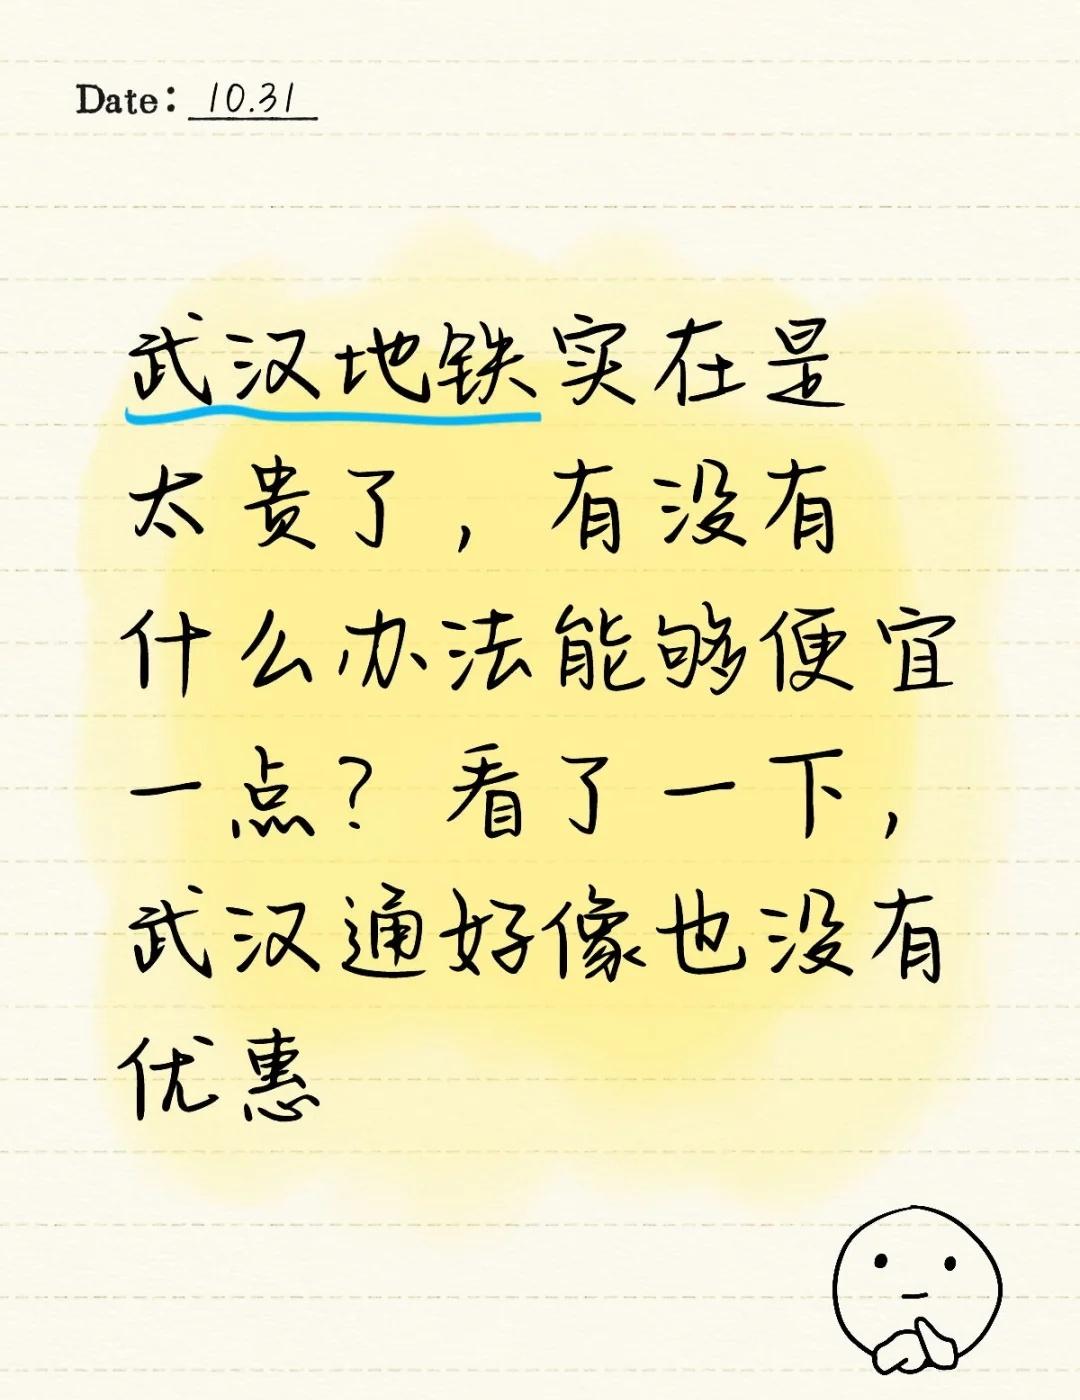 Date: 10.31
武汉地铁实在是
太贵了，有没有
什么办法能够便宜
一点？看了一下，
武汉通好像也没有
优惠